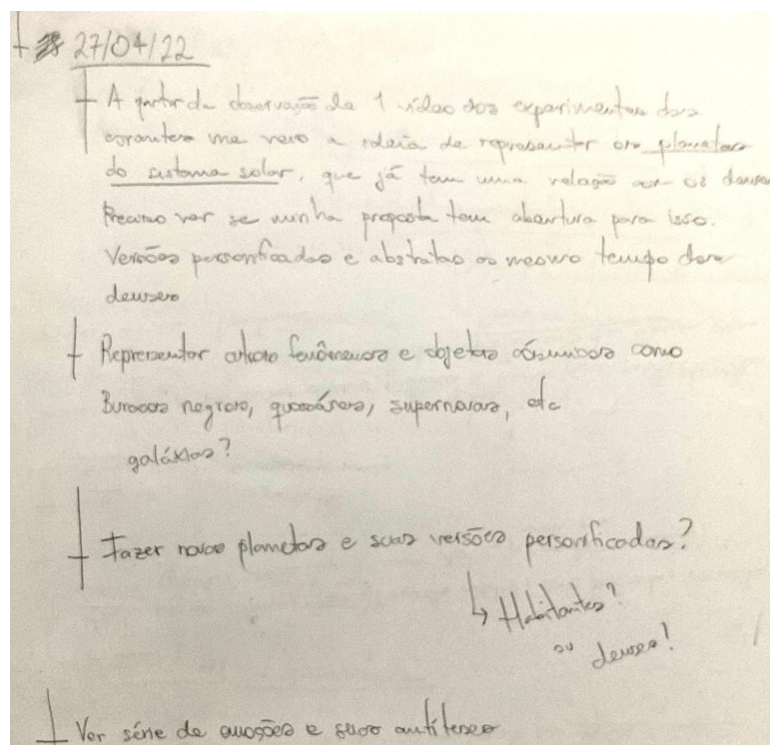 27/04/22
A partir da observação de 1 vídeo dos experimentos dos
corantes me veio a ideia de representar os planetas
do sistema solar, que já tem uma relação com os deuses
Preciso ver se minha proposta tem abertura para isso.
Versões personificadas e abstratas ao mesmo tempo dos
deuses
Representar outros fenômenos e objetos cósmicos como
Buracos negros, quasáres, supernovas, etc
galáxias?
Fazer novos planetas e suas versões personificadas?
↳ Habitantes?
ou deuses?
Ver série de emoções e suas antíteses